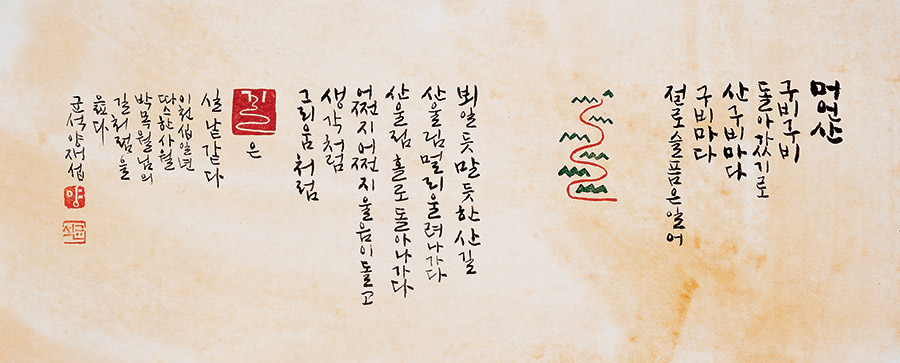 머언 산
구비구비
돌아갔기로
산 구비마다
구비마다
절로 슬픔은 일어
뵈일 듯 말 듯한 산길
산울림 멀리 울려나가다
산울림 홀로 돌아나가다
어쩐지 어쩐지 울음이 돌고
생각처럼
그리움처럼
길은
실낱 같다
이천십일년
따스한 사월
박목월님의
길처럼을
쓰다
균석 양재섭
양